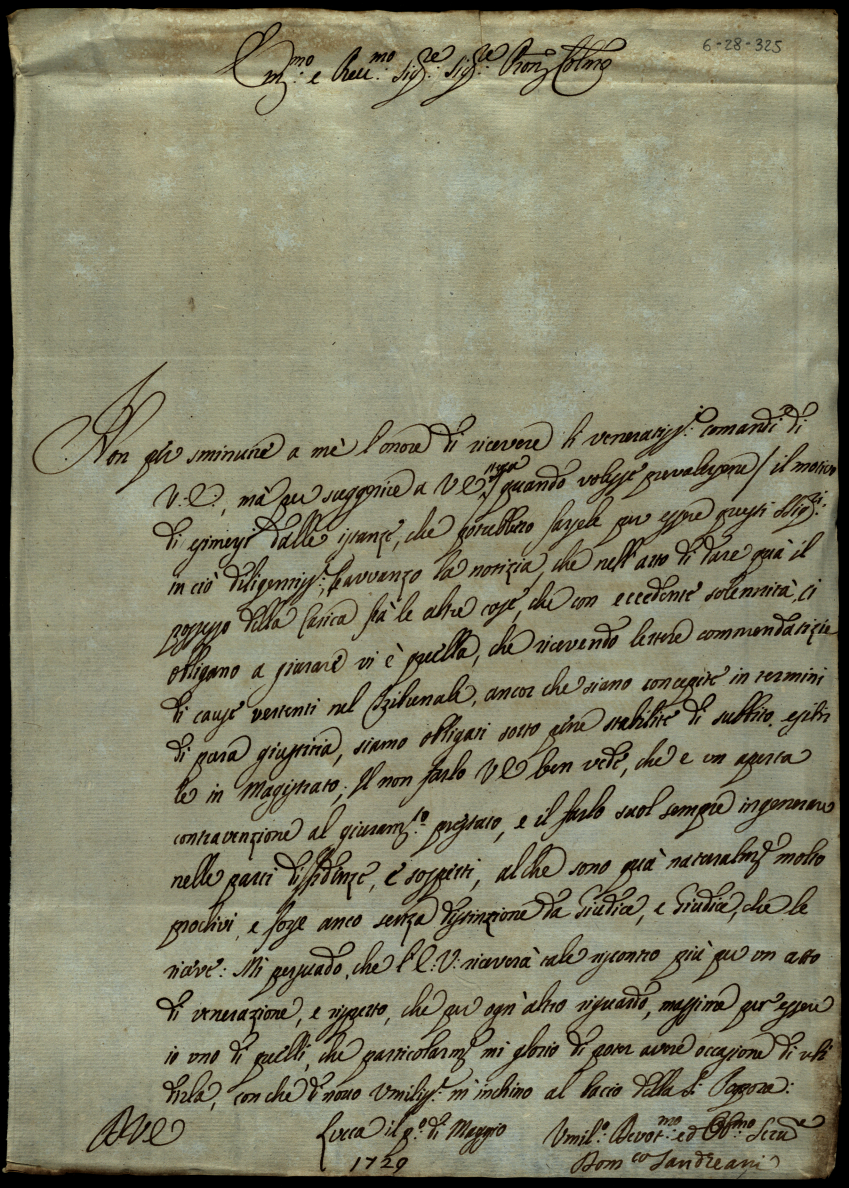 6-28-325
Em.mo e Reu.mo Sig.re Sig.re Pron Colmo
Non già sminuire a mè l'onore di ricevere li veneratiss.i comandi di
V.E., mà per suggerire a VE (quando volesse prevalersene / il motivo
di esimersi dalle istanze, che potrebbero farsele per essere questi SSig.ri
in ciò diligentiss.i, le avvanzo la notizia, che nell'atto di dare quà il
possesso della Carica frà le altre cose, che con eccedente solennità, ci
obligano a giurare vi è quella, che ricevendo lettere commendatizie
di cause vertenti nel Tribunale, ancor che siano concepite in termini
di pura giustitia, siamo obligati sotto pene stabilite di subbito esibir
le in Magistrato; Il non farlo VE ben vede, che è un aperta
contravenzione al giuram.to prestato, e il farlo suol sempre ingenerare
nelle parti diffidenze, è sospetti, al che sono quà naturalm.e molto
proclivi, e forse anco senza distinzione da Giudice, e Giudice, che le
riceve: Mi persuado, che l'E.V. riceverà tale riscontro più per un atto
di venerazione, e rispetto, che per ogn'altro riguardo, massime per essere
io uno di quelli, che particolarm.e mi glorio di poter avere occasione di ubi
dirla, con che di nouo Vmiliss.e m'inchino al bacio della S. Porpora:
DVE
Lucca il p.o di Maggio
1729
Vmil.o Devot.mo ed Obb.mo Seru.e
Dom.co Sandreani